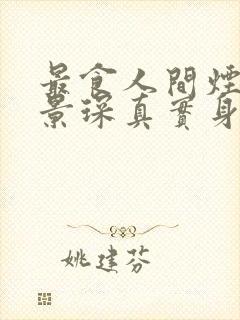 最食人間煙
景琛真實身
姚建芬